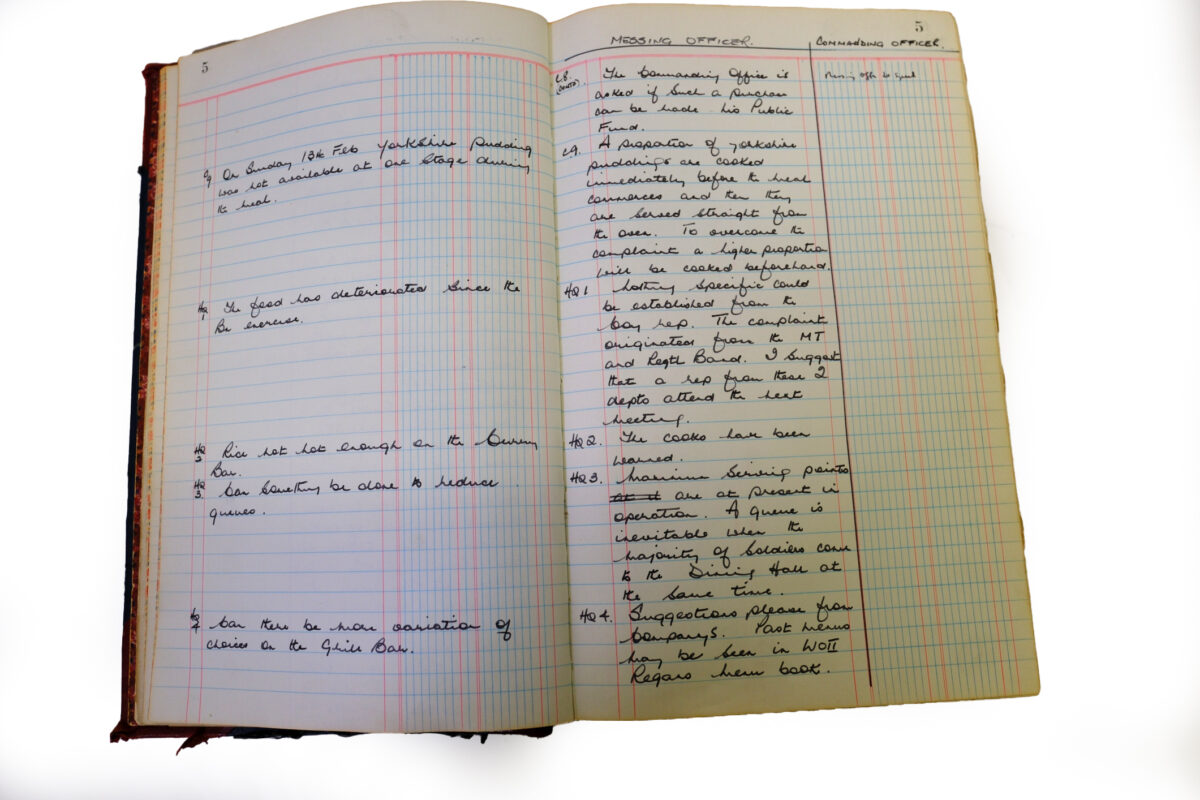 5
C
9 On Sunday 13th Feb Yorkshire Pudding
was not available at one stage during
the meal.
HQ
1 The food has deteriorated since the
Bn exercise.
HQ
2 Rice not hot enough on the Curry
Bar.
HQ
3 Can something be done to reduce
queues.
HQ
4 Can there be more variation of
choices on the Grill Bar.
5
MESSING OFFICER.
COMMANDING OFFICER.
C8
(contd). The Commanding Office is
asked if such a purchase
can be made his Public
Fund.
Messing Offr to speak
C9. A proportion of yorkshire
puddings are cooked
immediately before the meal
commences and then they
are served straight from
the oven. To overcome the
complaint a higher proportion
will be cooked beforehand.
HQ 1 Nothing specific could
be established from the
Coy rep. The complaint
originated from the MT
and Regtl Band. I suggest
that a rep from these 2
depts attend the next
meeting.
HQ 2. The cooks have been
warned.
HQ 3. Maximum serving points
are at present in
operation. A queue is
inevitable when the
majority of soldiers come
to the Dining Hall at
the same time.
HQ 4. Suggestions please from
Companys. Past menus
may be seen in WOII
Regans menu book.